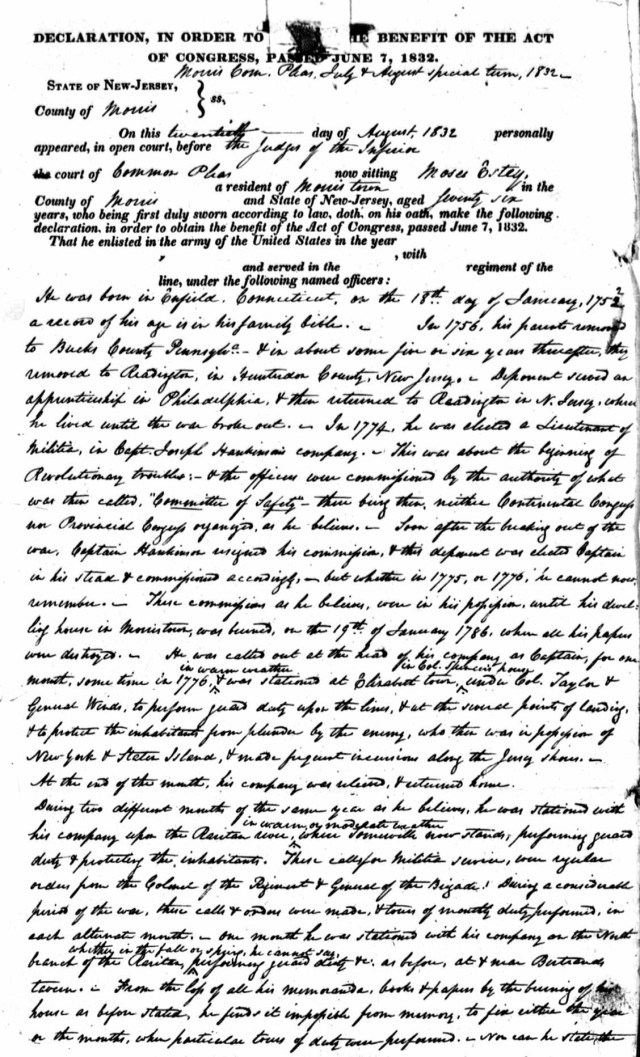 DECLARATION, IN ORDER TO THE BENEFIT OF THE ACT
OF CONGRESS, PASSED JUNE 7, 1832.
Morris Com. Pleas, July & August special term, 1832 –
STATE OF NEW-JERSEY,
County of Morris } ss,
On this twentieth day of August, 1832 personally
appeared, in open court, before the Judges of the Inferior
the court of Common Pleas now sitting Moses Estey,
a resident of Morristown in the
County of Morris and State of New-Jersey, aged Seventy six
years, who being first duly sworn according to law, doth, on his oath, make the following
declaration, in order to obtain the benefit of the Act of Congress, passed June 7, 1832.
That he enlisted in the army of the United States in the year
, with
and served in the regiment of the
line, under the following named officers:
He was born in Enfield, Connecticut, on the 18th day of January, 1752
a record of his age is in his family bible. – In 1756, his parents removed
to Bucks County Pennsylva. – & in about some five or six years thereafter, they
removed to Readington, in Hunterdon County, New Jersey. – Deponent served an
apprenticeship in Philadelphia, & then returned to Readington in N. Jersey, where
he lived until the war broke out. – In 1774, he was elected a Lieutenant of
Militia, in Capt. Joseph Hankinson's company. – This was about the beginning of
Revolutionary troubles: – & the officers were commissioned by the authority of what
was then called, "Committee of Safety" – there being then, neither Continental Congress
nor Provincial Congress organized, as he believes. – Soon after the breaking out of the
war, Captain Hankinson resigned his commission, & this deponent was elected Captain
in his stead & commissioned accordingly, – but whether in 1775, or 1776, he cannot now
remember. – These commissions as he believes, were in his possession, until his dwel-
ling house in Morristown, was burned, on the 19th of January 1786, when all his papers
were destroyed. – He was called out at the head of his company as Captain, for one
in warm weather in Col. Spencer's house
month, some time in 1776, & was stationed at Elizabeth town, under Col. Taylor &
General Winds, to perform guard duty upon the lines, & at the several points of landing,
& to protect the inhabitants from plunder by the enemy, who then was in possession of
New York & Staten Island, & made frequent incursions along the Jersey shore. –
At the end of the month, his company was relieved, & returned home.
During two different months of the same year as he believes, he was stationed with
in warm or moderate weather
his company upon the Raritan river, where Somerville now stands, performing guard
duty & protecting the inhabitants. These calls for Militia service, were regular
orders from the Colonel of the Regiment & General of the Brigade! During a considerable
period of the war, these calls & orders were made, & tours of monthly duty performed, in
each alternate month. – one month he was stationed with his company on the North
whether in the fall or spring, he cannot say,
branch of the Raritan, performing guard duty &c. as before, at & near Bertrands
tavern. – From the loss of all his memoranda, books & papers by the burning of his
house as before stated, he finds it impossible from memory, to fix either the year
or the months, when particular tours of duty were performed. – Nor can he state, the